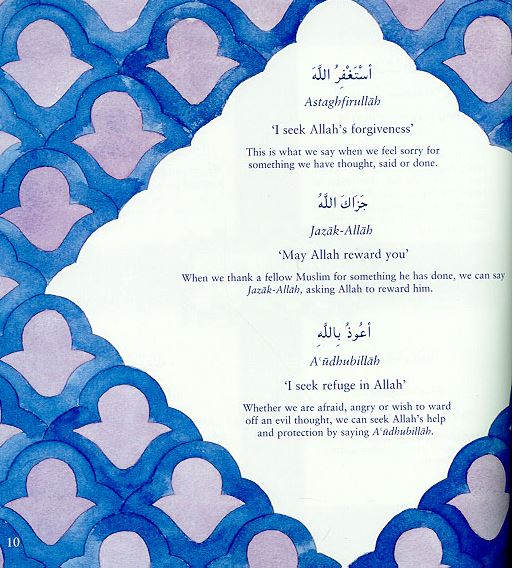 أَسْتَغْفِرُ اللَّهَ
Astaghfirullāh
‘I seek Allah’s forgiveness’
This is what we say when we feel sorry for
something we have thought, said or done.
جَزَاكَ اللَّهُ
Jazāk-Allāh
‘May Allah reward you’
When we thank a fellow Muslim for something he has done, we can say
Jazāk-Allāh, asking Allah to reward him.
أَعُوذُ بِاللَّهِ
Aʿūdhubillāh
‘I seek refuge in Allah’
Whether we are afraid, angry or wish to ward
off an evil thought, we can seek Allah’s help
and protection by saying Aʿūdhubillāh.
10